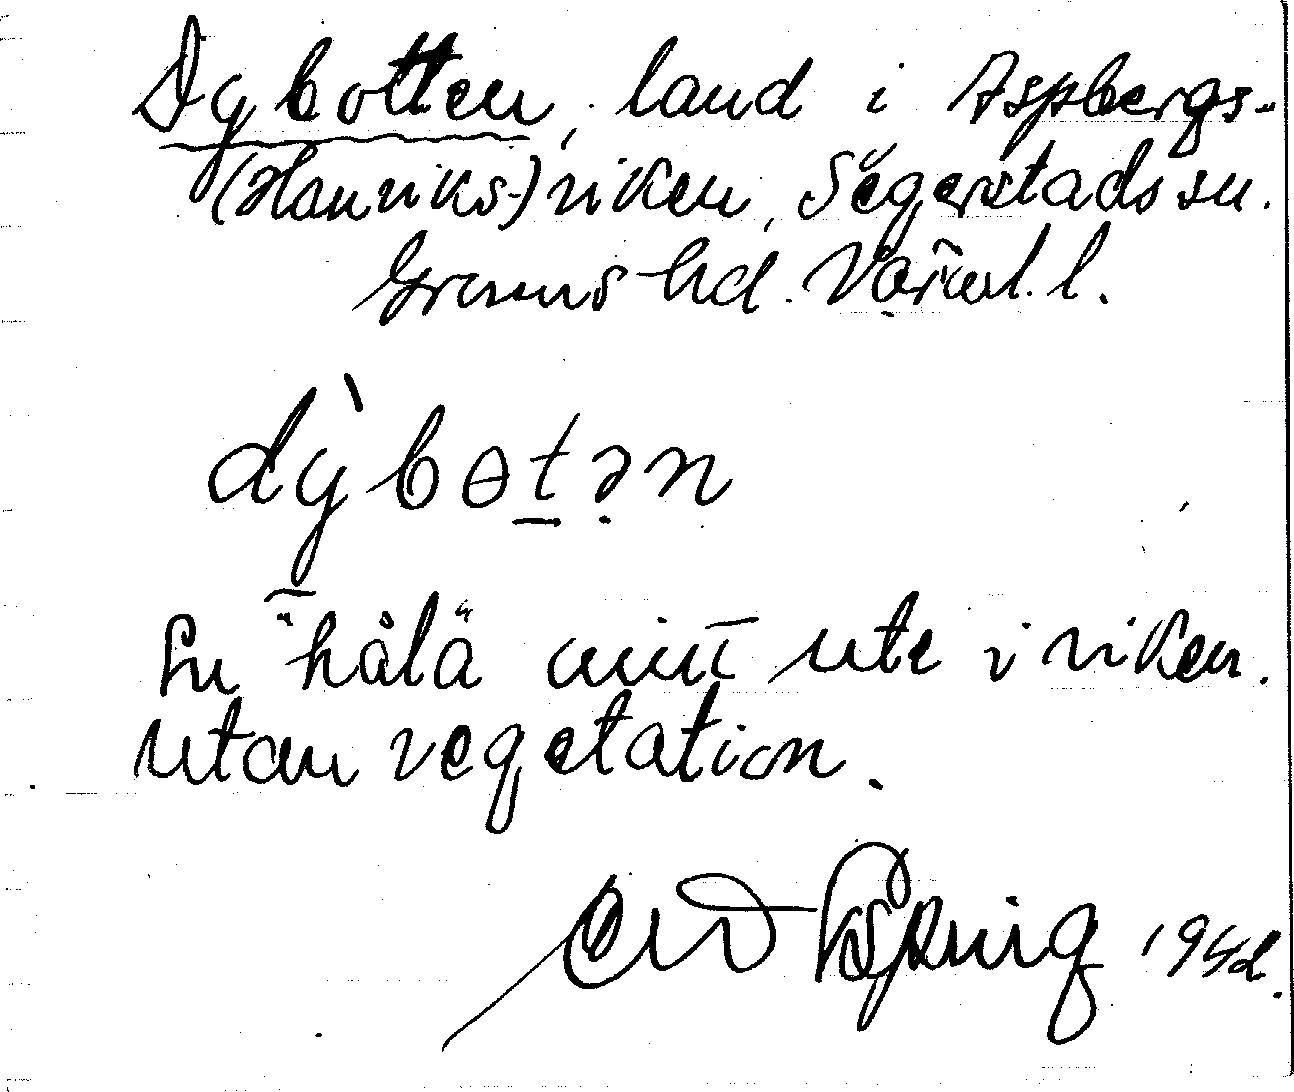 Dybotten, land i Aspbergs-
(Hanriks-)viken, Segerstads sn.
Grums hd. Värml. l.
dỳbɵt̠ən
En "hålä" mitt ute i viken.
utan vegetation.
1942.